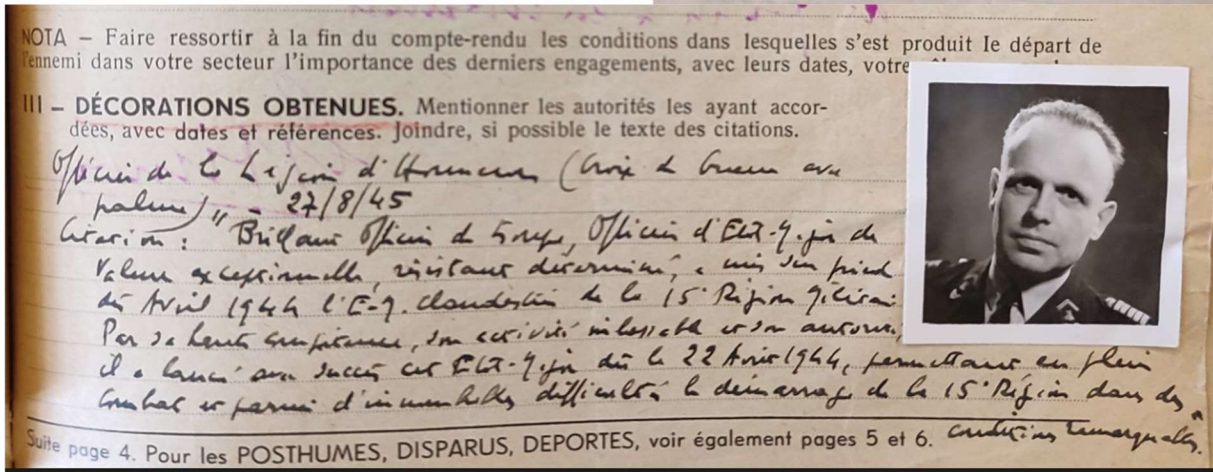 NOTA — Faire ressortir à la fin du compte-rendu les conditions dans lesquelles s'est produit le départ de
l'ennemi dans votre secteur l'importance des derniers engagements, avec leurs dates, votre
III — DÉCORATIONS OBTENUES. Mentionner les autorités les ayant accor-
dées, avec dates et références. Joindre, si possible le texte des citations.
Officier de la Légion d'Honneur (Croix de Guerre avec
palme) - 27/8/45
Citation : "Brillant Officier de Troupe, Officier d'Etat-Major de
valeur exceptionnelle, résistant déterminé, a mis sur pied
dès Avril 1944 l'E-M. clandestin de la 15° Région Militaire
Par sa haute compétence, son activité inlassable et son autorité,
il a lancé avec succès cet Etat-Major dès le 22 Avril 1944, permettant en plein
combat et parmi d'innombrables difficultés le démarrage de la 15° Région dans des
conditions remarquables.
Suite page 4. Pour les POSTHUMES, DISPARUS, DEPORTES, voir également pages 5 et 6.